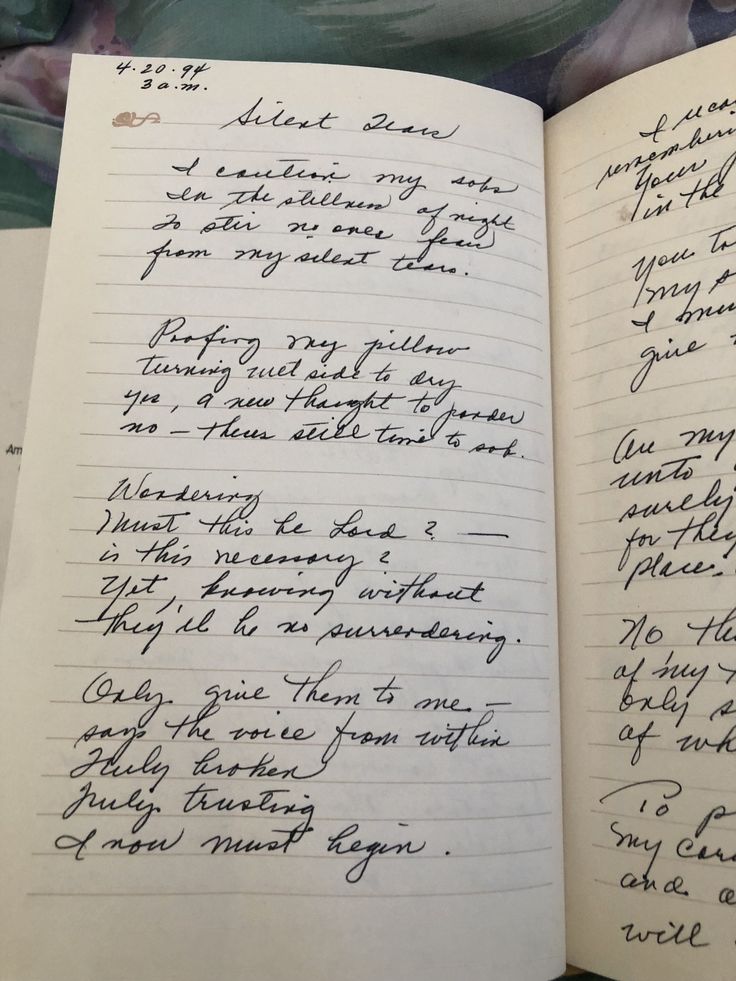 4.20.94
3 a.m.
Silent Tears
I caution my sobs
In the stillness of night
To stir no ones fear
from my silent tears.
Poofing my pillow
turning wet side to dry
yes, a new thought to ponder
no – theres still time to sob.
Wondering
Must this be Lord? —
is this necessary?
Yet, knowing without
they'll be no surrendering.
Only give them to me –
says the voice from within
Truly broken
Truly trusting
I now must begin.
Am
I
remember
Your
in the
You
my
I
give
my
unto
surely
for they
place.
No
of my
only
of
To
my
and
will